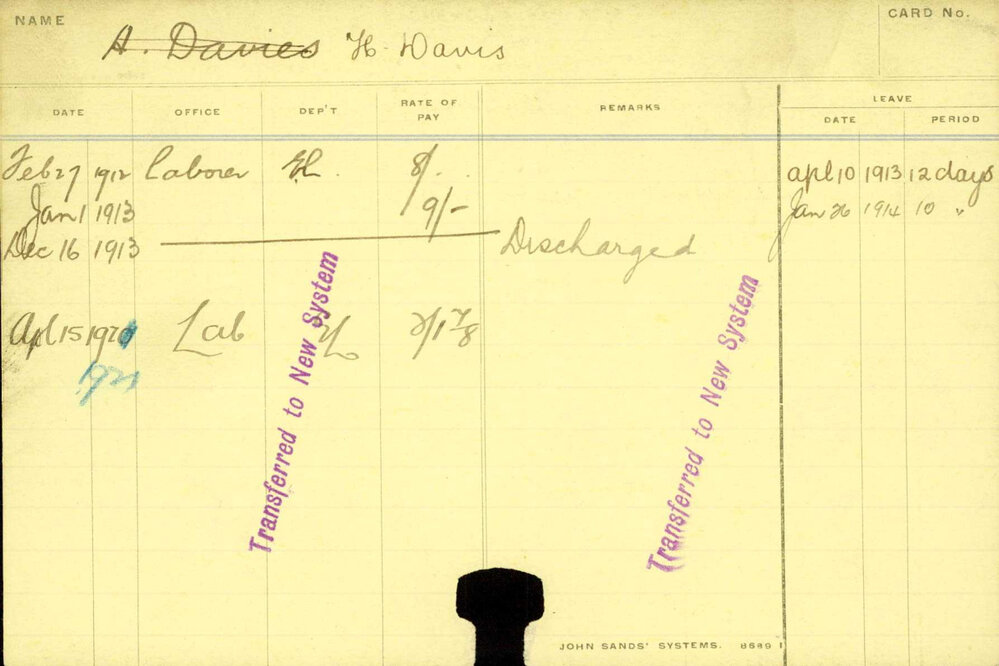 NAME
CARD No.
A. Davies H. Davis
DATE OFFICE DEP'T RATE OF PAY REMARKS LEAVE
DATE PERIOD
Feb 27 1912 Laborer 8/. apl 10 1913 12 days
Jan 1 1913 9/- Jan 26 1914 10 "
Dec 16 1913 Discharged
Apl 15 Lab
1921
Transferred to New System
Transferred to New System
JOHN SANDS' SYSTEMS. 8689